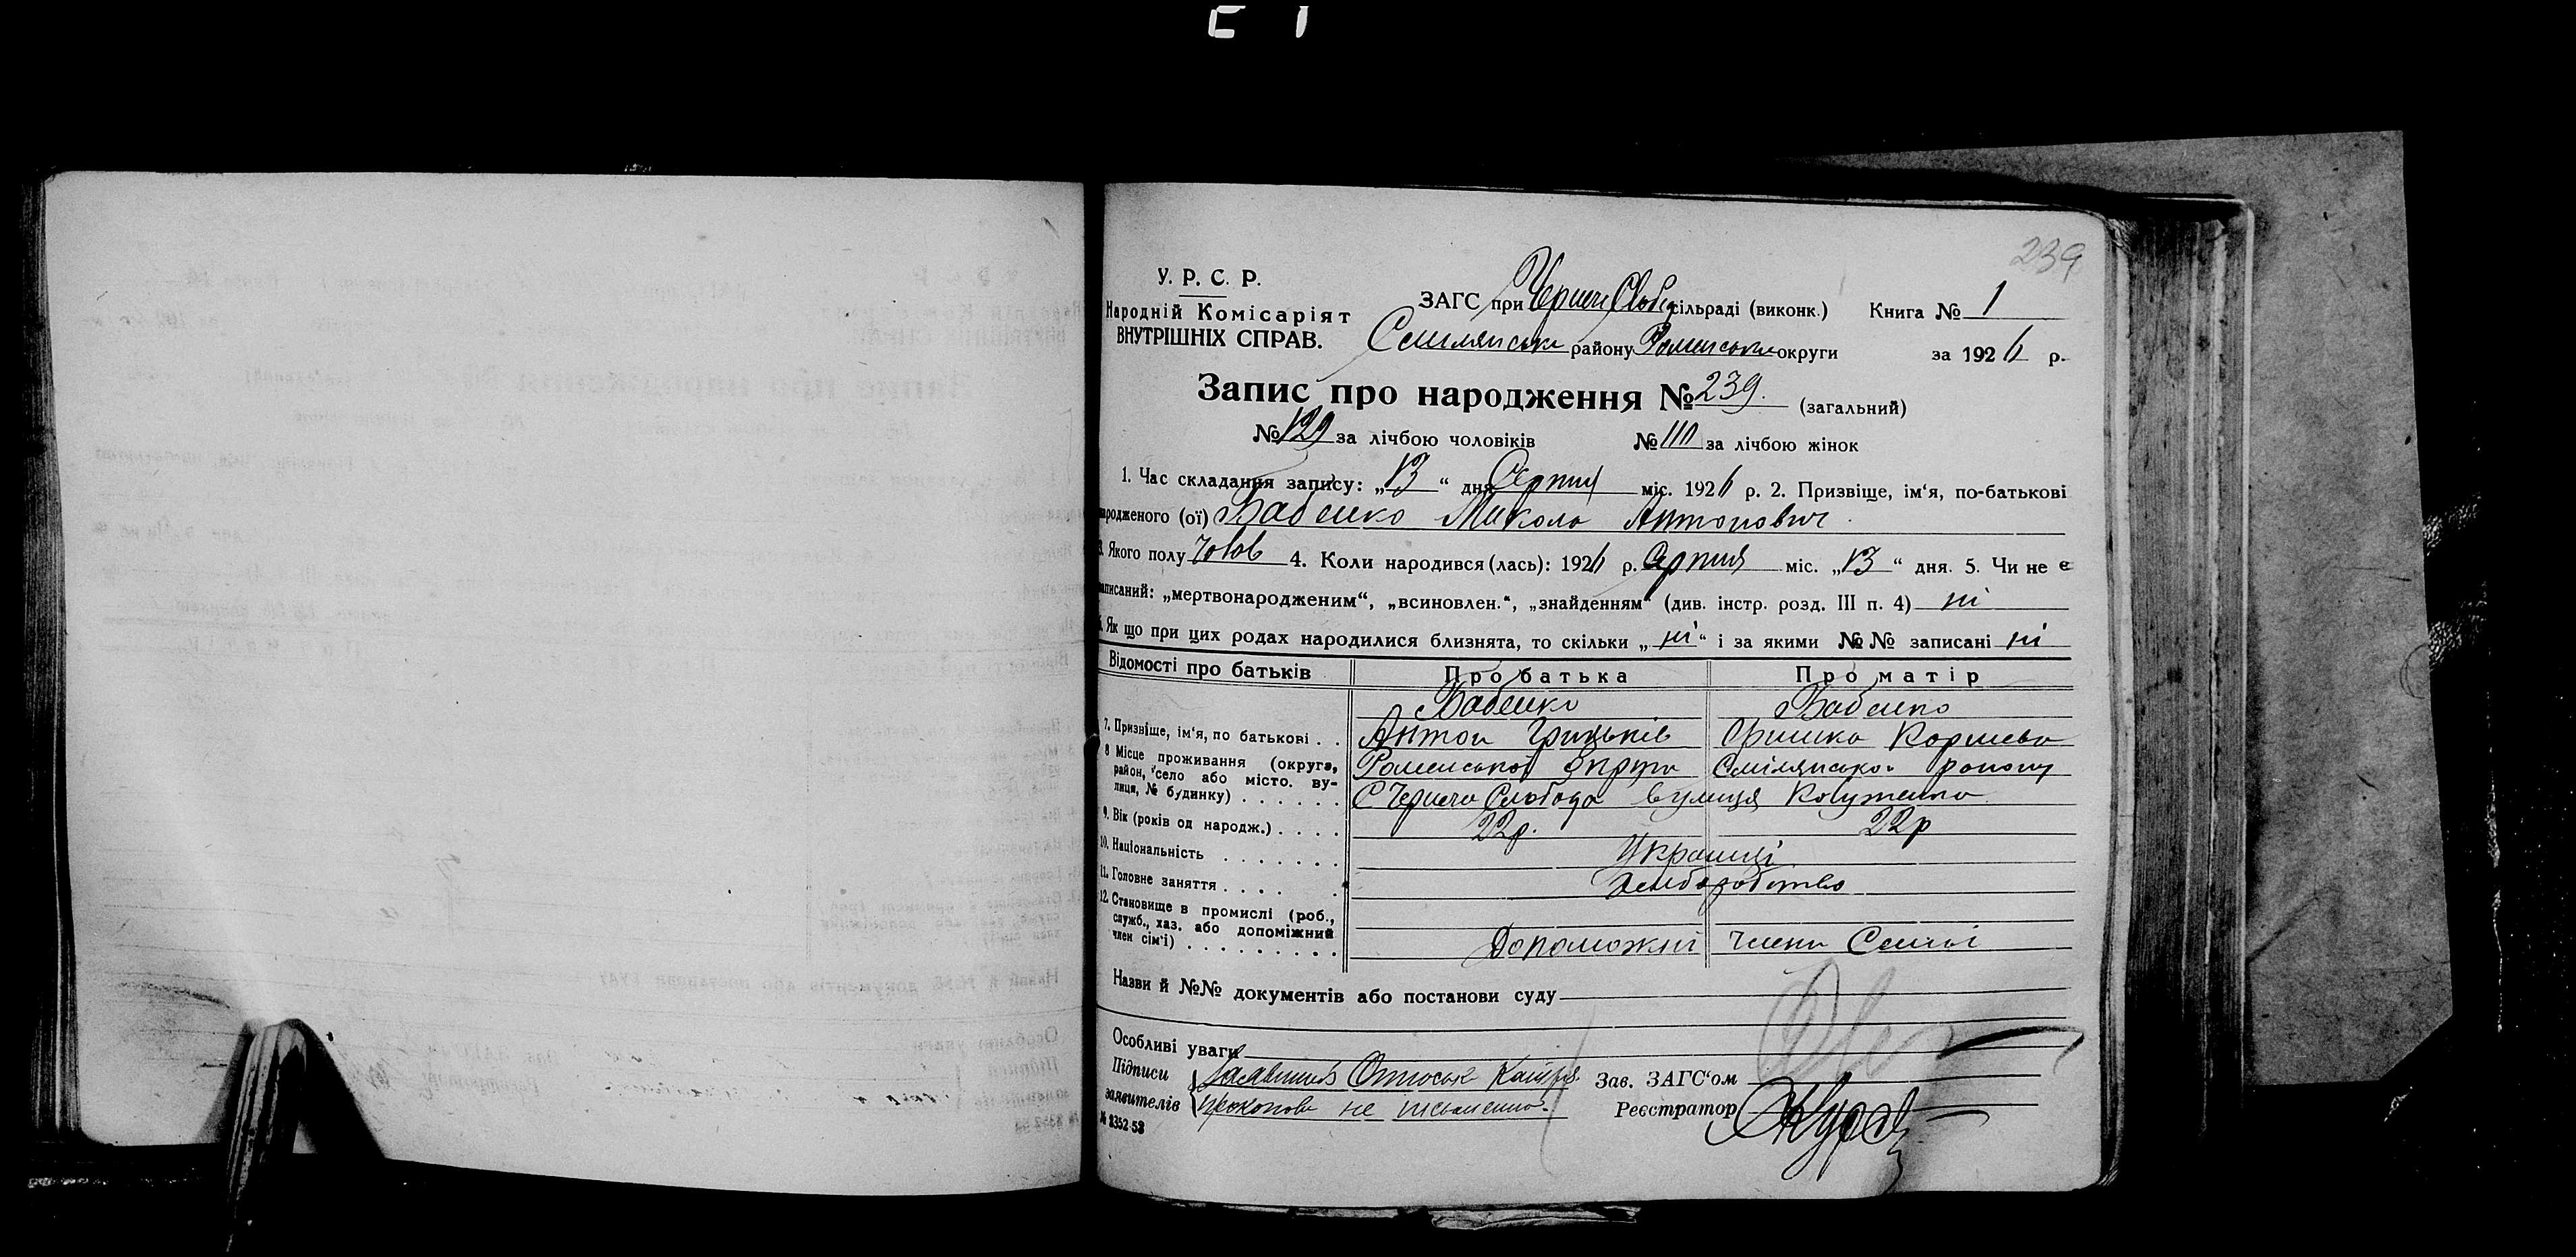 239
У. Р. С. Р.
Народній Комісаріят
ВНУТРІШНІХ СПРАВ.
ЗАГС при Чернечо Слобід сільраді (виконк.) Книга № 1
Смілянськ району Роменськ округи за 1926 р.
Запис про народження № 239. (загальний)
№ 129 за лічбою чоловіків № 110 за лічбою жінок
1. Час складання запису: „13“ дня Серпня міс. 1926 р. 2. Призвіще, ім‘я, по-батькові
народженого (ої) Бабенко Микола Антонович
3. Якого полу чолов 4. Коли народився (лась): 1926 р. Серпня міс. „13“ дня. 5. Чи не є
записаний: „мертвонародженим“, „всиновлен.“, „знайденням“ (див. інстр. розд. III п. 4) ні
6. Як що при цих родах народилися близнята, то скільки „ні“ і за якими №№ записані ні
Відомості про батьків Про батька Про матір
Бабенко Бабенко
7. Призвіще, ім‘я, по батькові . . Антон Грицьків Оришка Корнієва
8 Місце проживання (округа, район, село або місто. вулиця, № будинку) . . . . . . Роменської округи Смілянського району
С Чернеча Слобода вулиця
9. Вік (років од народж.) . . . . 22р. 22р
10. Національність . . . . . . . Українці
11. Головне заняття . . . . Хліборобство
12. Становище в промислі (роб., служб., хаз. або допоміжний член сім‘ї) . . . . . . . . Допоможні члени Семьї
Назви й №№ документів або постанови суду
Особливі уваги
Підписи
заявителів
не письменна.
Зав. ЗАГС‘ом
Реєстратор
№ 2352-53